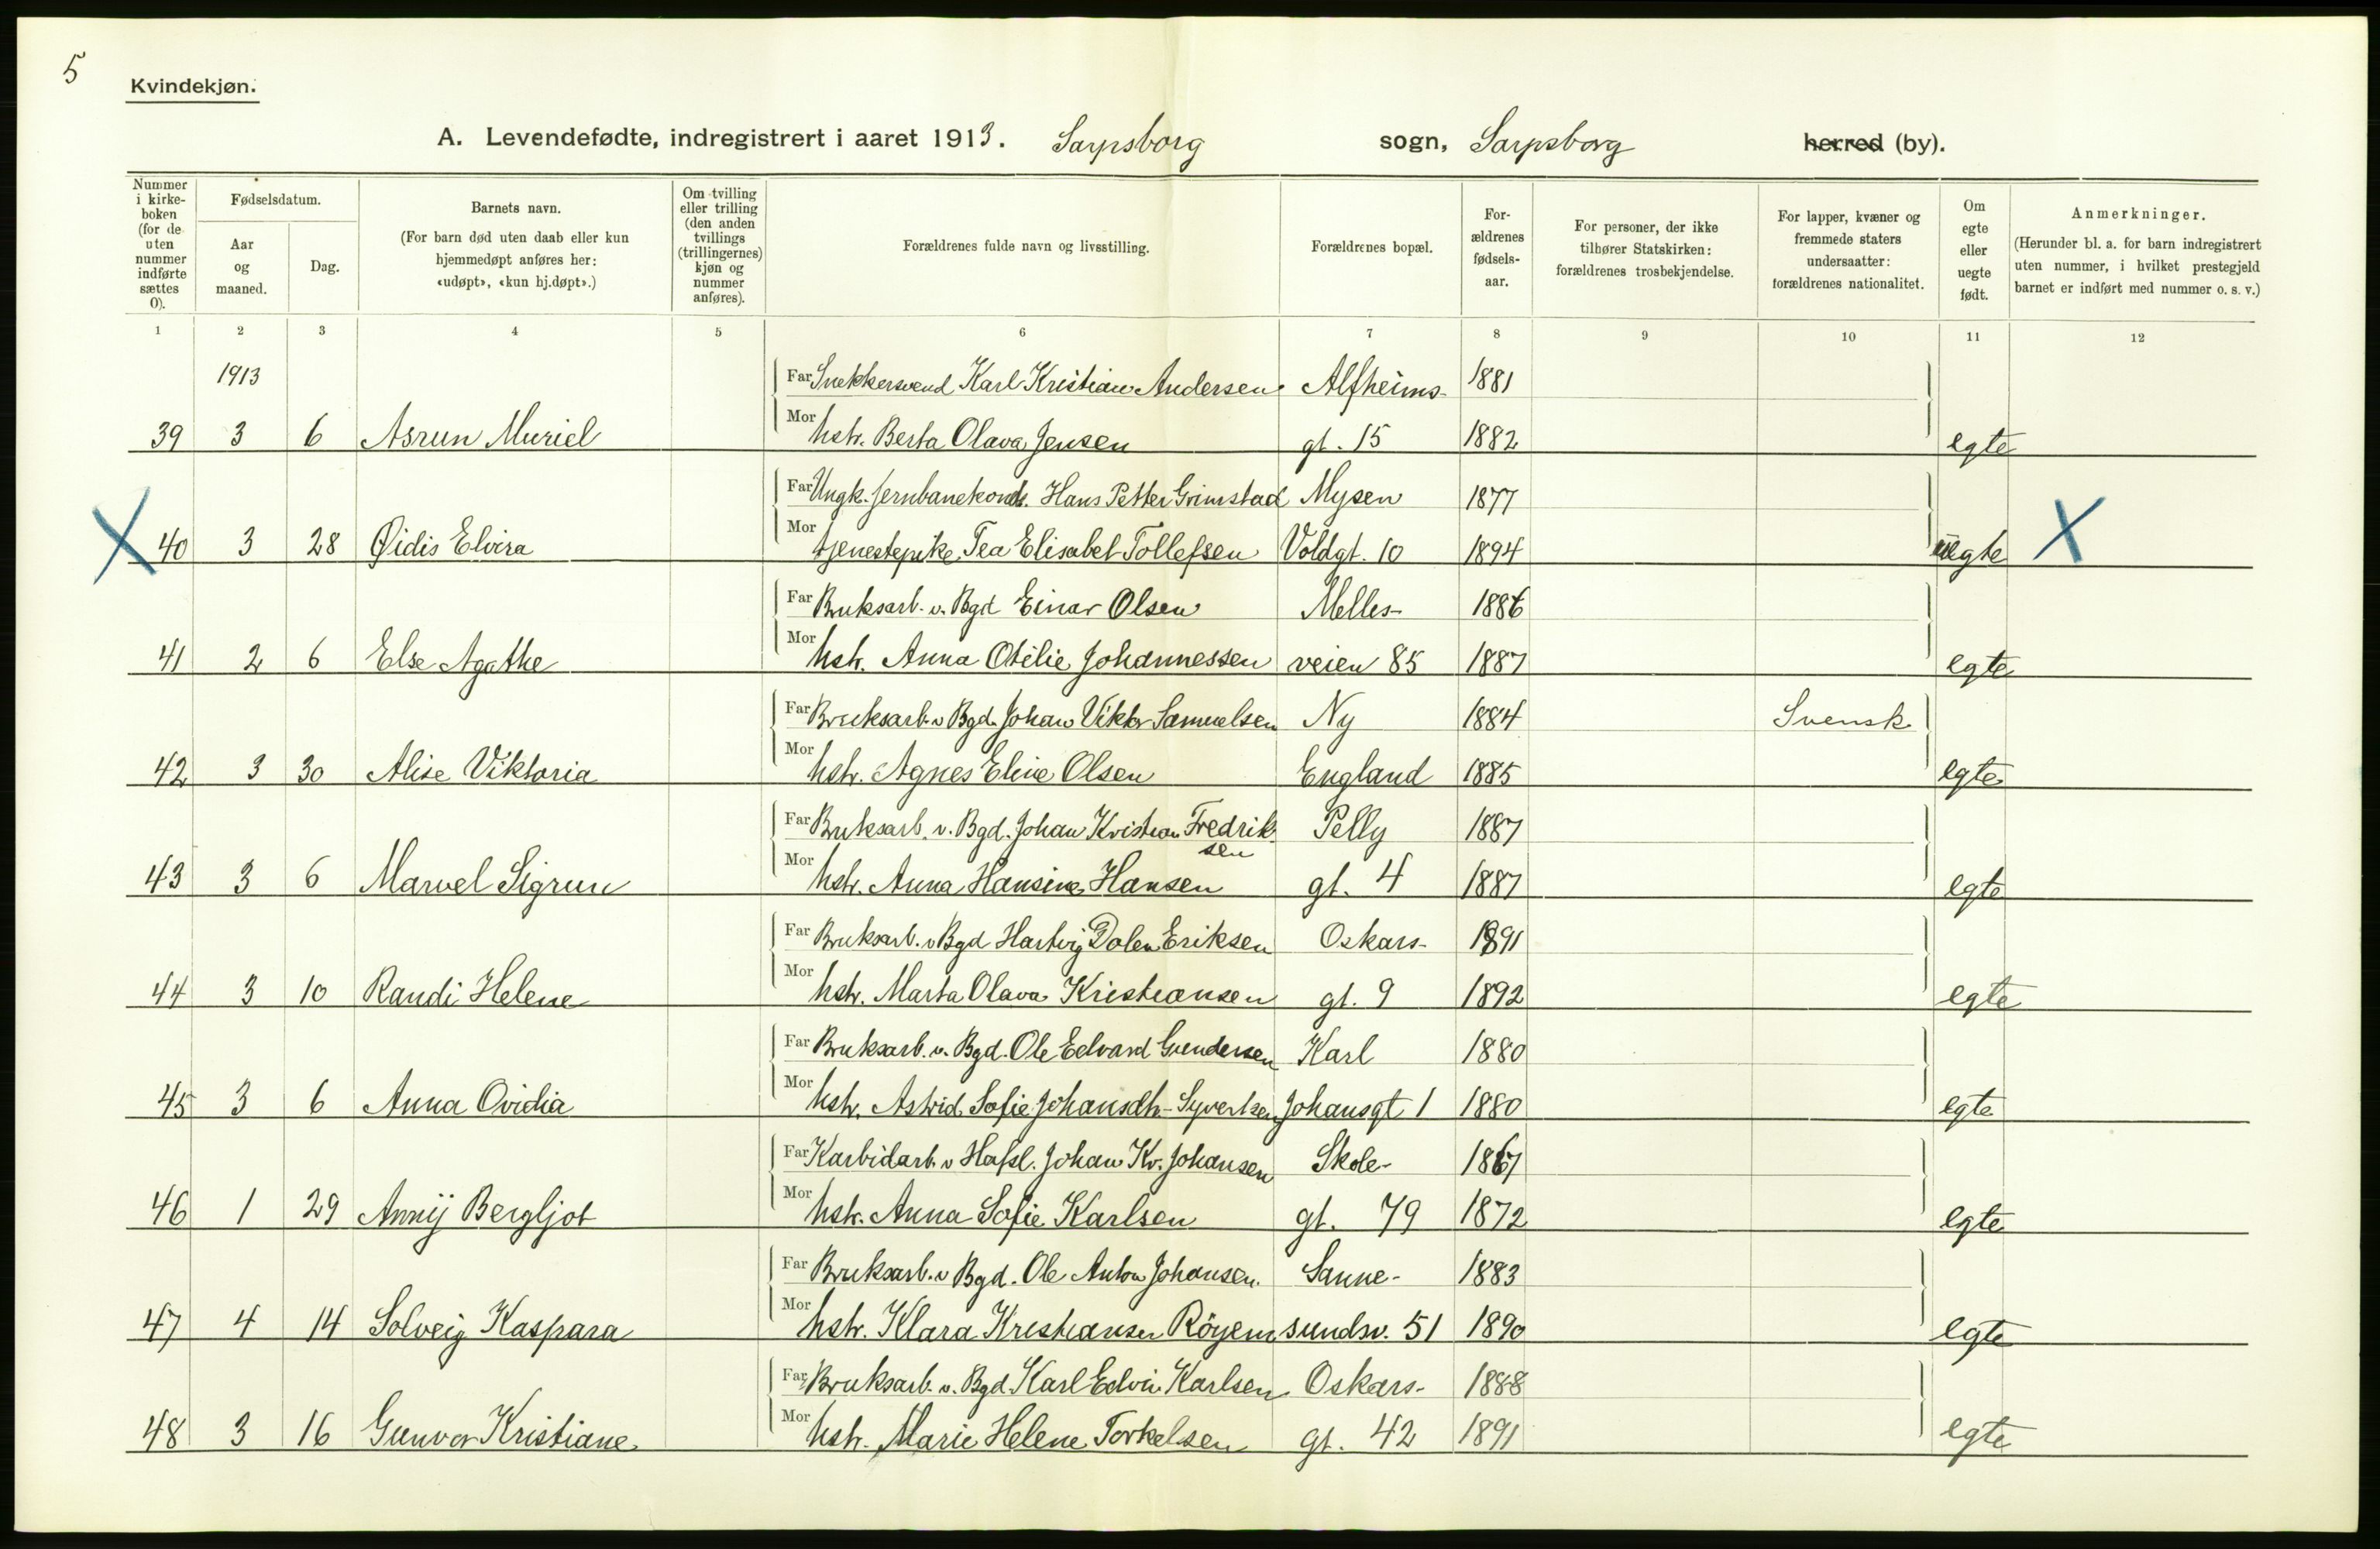 5
Kvindekjøn.
A. Levendefødte, indregistrert i aaret 1913. Sarpsborg sogn, Sarpsborg herred (by).
Nummer i kirkeboken (for de uten nummer indførte sættes 0).
Fødselsdatum.
Aar og maaned.
Dag.
Barnets navn.
(For barn død uten daab eller kun hjemmedøpt anføres her: «udøpt», «kun hj.døpt».)
Om tvilling eller trilling (den anden tvillings (trillingernes) kjøn og nummer anføres).
Forældrenes fulde navn og livsstilling.
Forældrenes bopæl.
Forældrenes fødselsaar.
For personer, der ikke tilhører Statskirken: forældrenes trosbekjendelse.
For lapper, kvæner og fremmede staters undersaatter: forældrenes nationalitet.
Om egte eller uegte født.
Anmerkninger.
(Herunder bl. a. for barn indregistrert uten nummer, i hvilket prestegjeld barnet er indført med nummer o. s. v.)
1 2 3 4 5 6 7 8 9 10 11 12
1913
Far Snekkersvend Karl Kristian Andersen Alfheims- 1881
39 3 6 Asrun Muriel Mor hstr. Berta Olava Jensen gt. 15 1882 egte
Far Ungk. jernbanekond. Hans Petter Grimstad Mysen 1877
X 40 3 28 Øidis Elvira Mor tjenestepike Tea Elisabet Tollefsen Voldgt. 10 1894 uegte X
Far Bruksarb. v. Bgd Einar Olsen Melles- 1886
41 2 6 Else Agathe Mor hstr. Anna Otilie Johannessen veien 85 1887 egte
Far Bruksarb. v Bgd. Johan Viktor Samuelsen Ny 1884 Svensk
42 3 30 Alise Viktoria Mor hstr. Agnes Eline Olsen England 1885 egte
Far Bruksarb. v. Bgd. Johan Kristian Fredrik- Pelly 1887
sen
43 3 6 Marvel Sigrun Mor hstr. Anna Hansine Hansen gt. 4 1887 egte
Far Bruksarb. v Bgd Hartvig Dolen Eriksen Oskars- 1891
44 3 10 Randi Helene Mor hstr. Marta Olava Kristiansen gt. 9 1892 egte
Far Bruksarb. v. Bgd. Ole Edvard Gundersen Karl 1880
45 3 6 Anna Ovidia Mor hstr. Astrid Sofie Johansdtr- Syvertsen Johansgt 1 1880 egte
Far Karbidarb. v Hafsl. Johan Kr. Johansen Skole- 1867
46 1 29 Annij Bergljot Mor hstr. Anna Sofie Karlsen gt. 79 1872 egte
Far Bruksarb. v Bgd. Ole Anton Johansen. Sanne- 1883
47 4 14 Solveig Kaspara Mor hstr. Klara Kristiansen Röyem sundsv. 51 1890 egte
Far Bruksarb. v. Bgd. Karl Edvin Karlsen Oskars- 1888
48 3 16 Gunvor Kristiane Mor hstr. Marie Helene Torkelsen gt. 42 1891 egte